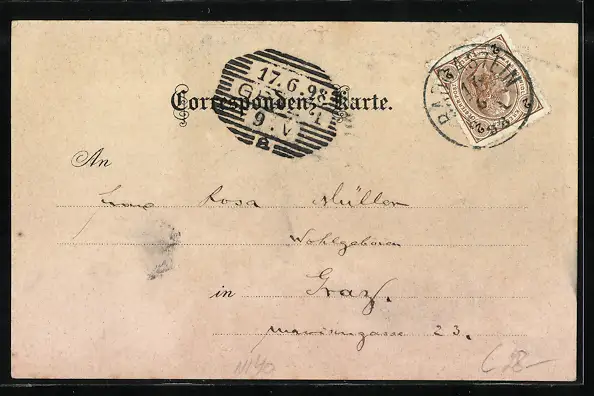 17.6.98
9.V
a
Correspondenz-Karte.
An
Frau Rosa Müller
Wohlgeboren
in Graz.
23.